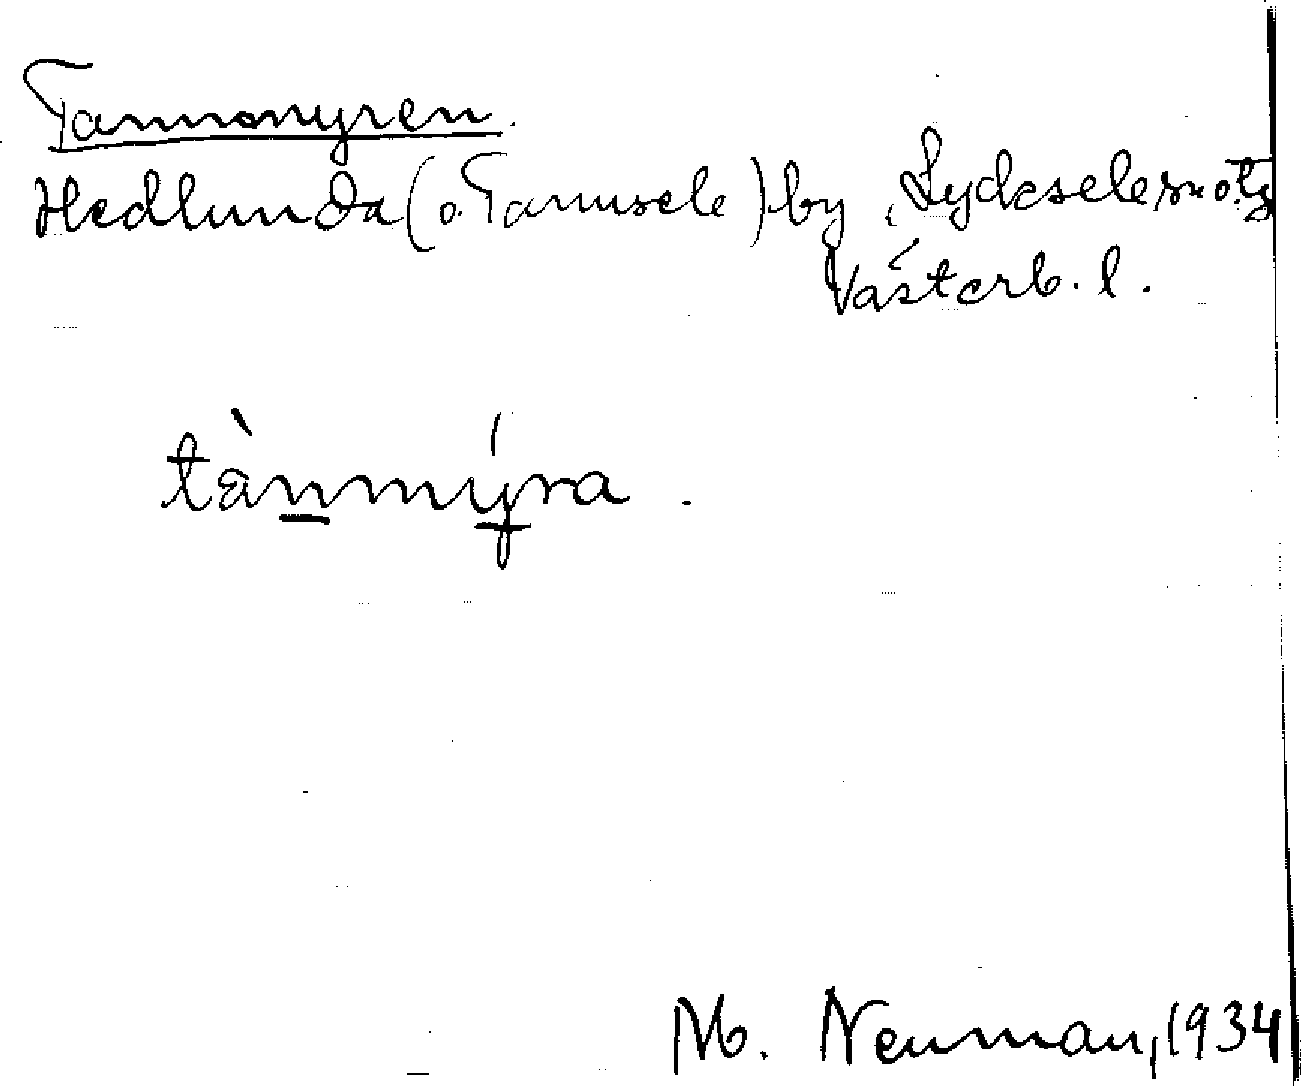 Tannmyren.
Hedlunda (o. Tannsele) by, Lycksele sn o. tg
Västerb. l.
tànmýra .
M. Neuman, 1934